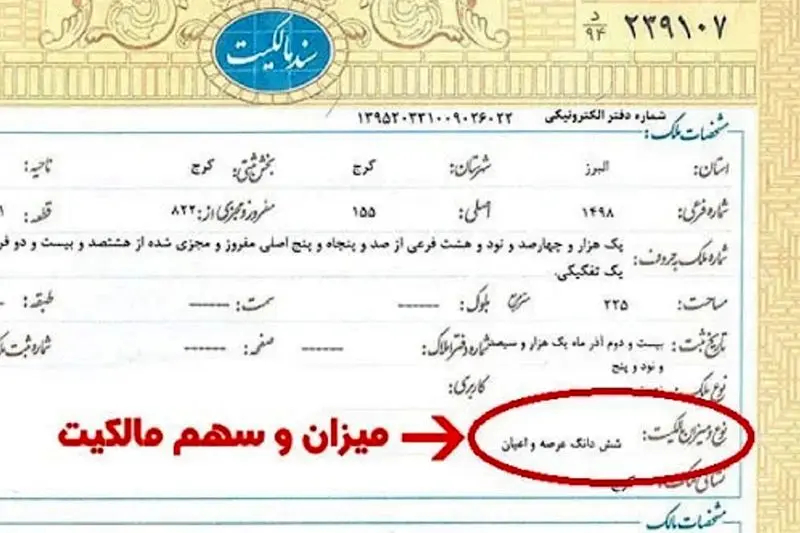 سند مالکیت
۲۳۹۱۰۷ د ۹۴
شماره دفتر الکترونیکی ۱۳۹۵۲۰۳۳۱۰۰۹۰۲۶۰۲۲
مشخصات ملک:
استان: البرز شهرستان: کرج بخش ثبتی: کرج ناحیه:
شماره فرعی: ۱۴۹۸ اصلی: ۱۵۵ مفروز و مجزی از: ۸۲۲ قطعه:
شماره ملک به حروف: یک هزار و چهارصد و نود و هشت فرعی از صد و پنجاه و پنج اصلی مفروز و مجزی شده از هشتصد و بیست و دو
یک تفکیکی.
مساحت: ۲۲۵ مترمربع بلوک: ------ سمت: ------ طبقه:
تاریخ ثبت: بیست و دوم آذر ماه یک هزار و سیصد شماره دفتر املاک: ------ صفحه: ------ شماره ثبت
و نود و پنج
نوع ملک: کاربری:
نوع و میزان مالکیت: شش دانگ عرصه و اعیان
میزان و سهم مالکیت
نشانی ملک:
مشخصات مالک